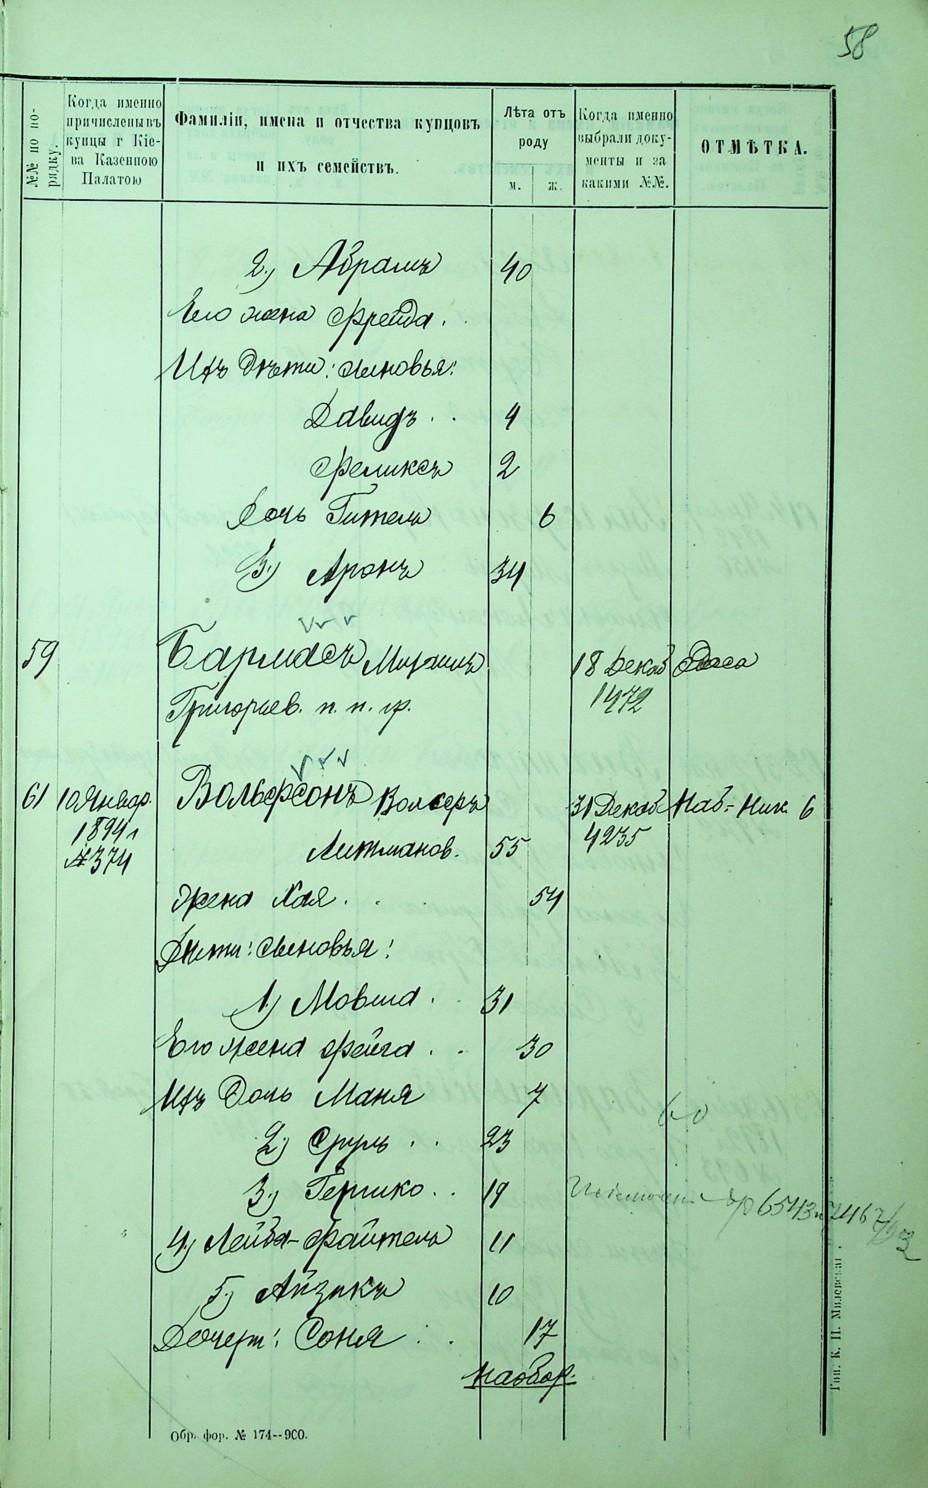 58
№№ по по-
рядку.
Когда именно
причислены въ
купцы г Кіе-
ва Казенною
Палатою
Фамиліи, имена и отчества купцовъ
и ихъ семействъ.
Лѣта отъ
роду
м. ж.
Когда именно
выбрали доку-
менты и за
какими №№.
ОТМѢТКА.
2) Абрамъ 40
Его жена Фрейда.
Ихъ дѣти: сыновья:
Давидъ . . 4
Феликсъ 2
Дочь Гитель 6
3) Аронъ 34
59 Бармасъ Михаилъ 18 Декаб Одеса
Григорьев. п. п. гр. 1472
61 10 Январ. Вольфсонъ Волферъ 31 Декаб Наб-Ник 6
1894 г Литманов. 55 4235
№ 374
Жена Хая . . 54
Дѣти: сыновья:
1) Мовша . . 31
Его жена Фейга . . 30
Ихъ дочь Маня 7
2) Сруль . . 23
3) Гершко . . 19
6543
4) Лейба-Файтель 11
5) Айзикъ 10
Дочери: Соня . . 17
наобор.
Обр. фор. № 174--900.
Тип. К. Н. Милевскаг .